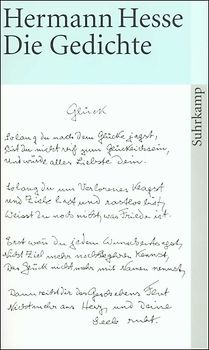 Hermann Hesse
Die Gedichte
Suhrkamp
Glück
Solang du nach dem Glücke jagst,
Bist du nicht reif zum Glücklichsein,
Und wäre alles Liebste Dein.
Solang du um Verlornes klagst
Und Ziele hast und rastlos bist,
Weisst du noch nicht, was Friede ist.
Erst wenn du jedem Wunsch entsagst,
Nicht Ziel mehr noch Begehren kennst,
Das Glück nicht mehr mit Namen nennst,
Dann reicht dir des Geschehens Flut
Nicht mehr ans Herz, und Deine
Seele ruht.